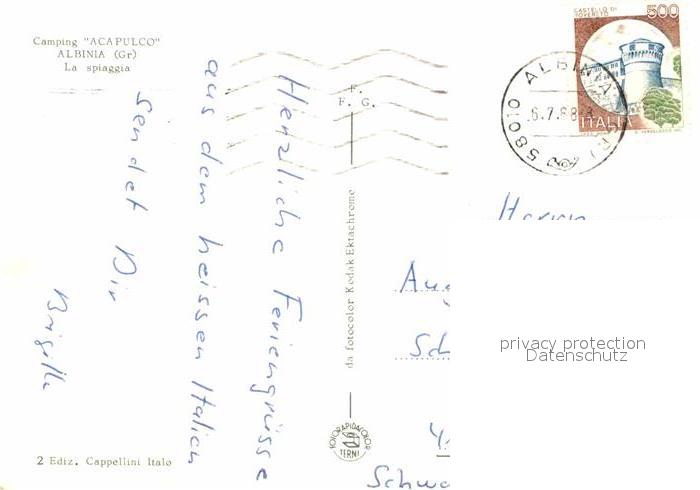 Camping "ACAPULCO"
ALBINIA (Gr)
La spiaggia
CASTELLO DI
ROVERETO
500
ITALIA
ALBINIA
6.7.88
58010
F.
F. G.
Herzliche Feriengrüsse
aus dem heissen Italien
sendet Dir
Brigitte
da fotocolor Kodak Ektachrome
FOTORAPIDACOLOR
TERNI
2 Ediz. Cappellini Italo
Herrn
privacy protection
Datenschutz